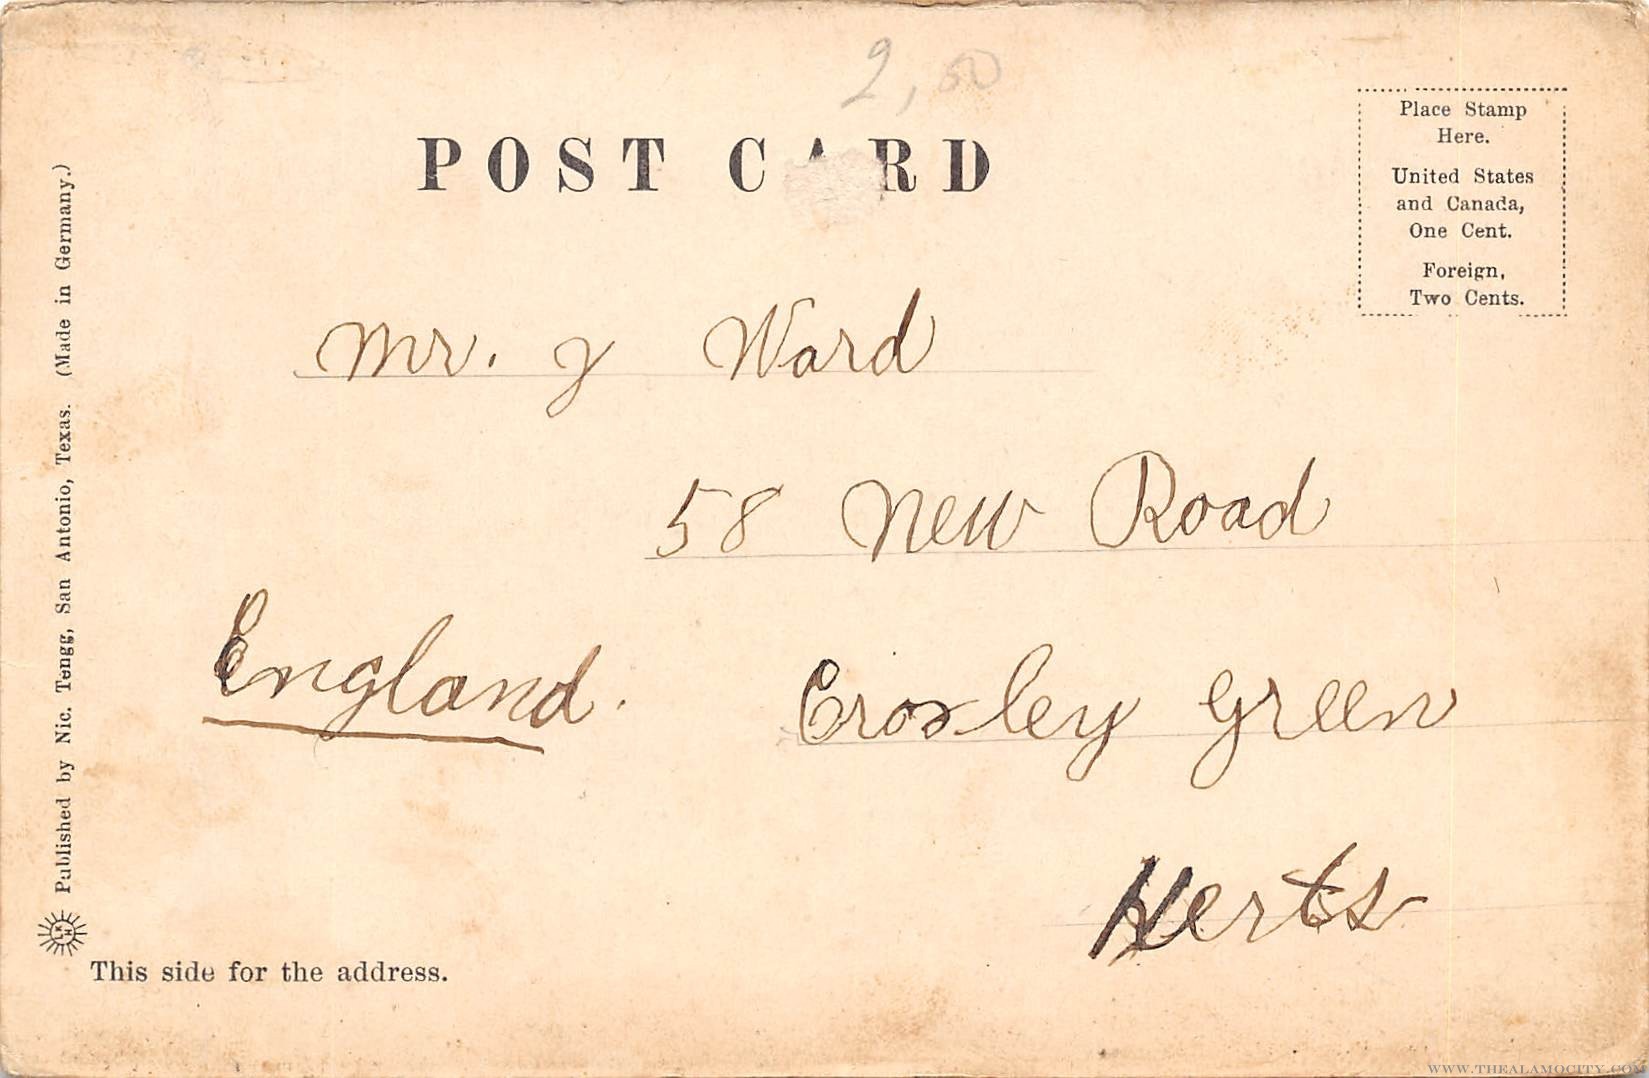 2,50
POST CARD
Place Stamp
Here.
United States
and Canada,
One Cent.
Foreign,
Two Cents.
Mr. J Ward
58 New Road
England.
Croxley Green
Herts
Published by Nic. Tengg, San Antonio, Texas. (Made in Germany.)
This side for the address.
WWW.THEALAMOCITY.COM